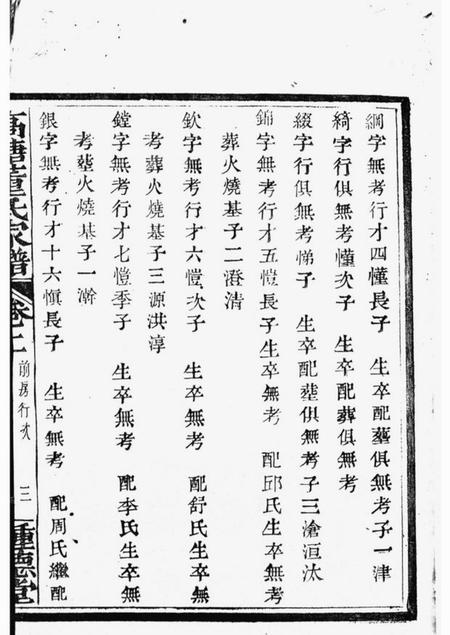 綱字無考行才四懂長子　生卒配塟俱無考子一津
綺字行俱無考懂次子　生卒配葬俱無考
綴字行俱無考悌子　生卒配塟俱無考子三滄洹汰
錦字無考行才五愷長子生卒無考　配邱氏生卒無考
葬火燒基子二澄清
欽字無考行才六愷次子　生卒無考　配舒氏生卒無
考葬火燒基子三源洪淳
鏜字無考行才七愷季子　生卒無考　配李氏生卒無
考塟火燒基子一澣
銀字無考行才十六愼長子　生卒無考　配周氏繼配
高塘董氏家譜　卷之二　前房行次　三　種德堂